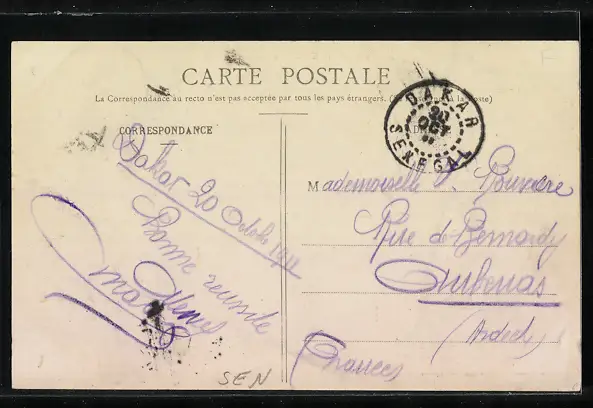 CARTE POSTALE
La Correspondance au recto n'est pas acceptée par tous les pays étrangers.
CORRESPONDANCE
DAKAR
20
OCT
SENEGAL
Dakar 20 Octobre 1911
Bonne reussite
Mademoiselle
Rue de Bernardy
Aubenas
(Ardech)
France
SEN